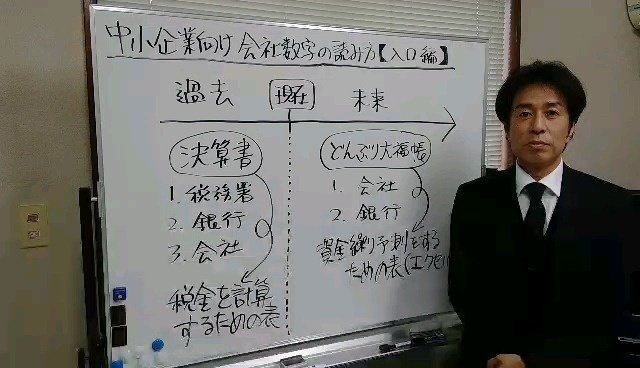 中小企業向け 会社数字の読み方【入口編】
過去 現在 未来
決算書
1. 税務署
2. 銀行
3. 会社
税金を計算
するための表
どんぶり大福帳
1. 会社
2. 銀行
資金繰り予測をする
ための表(エクセル